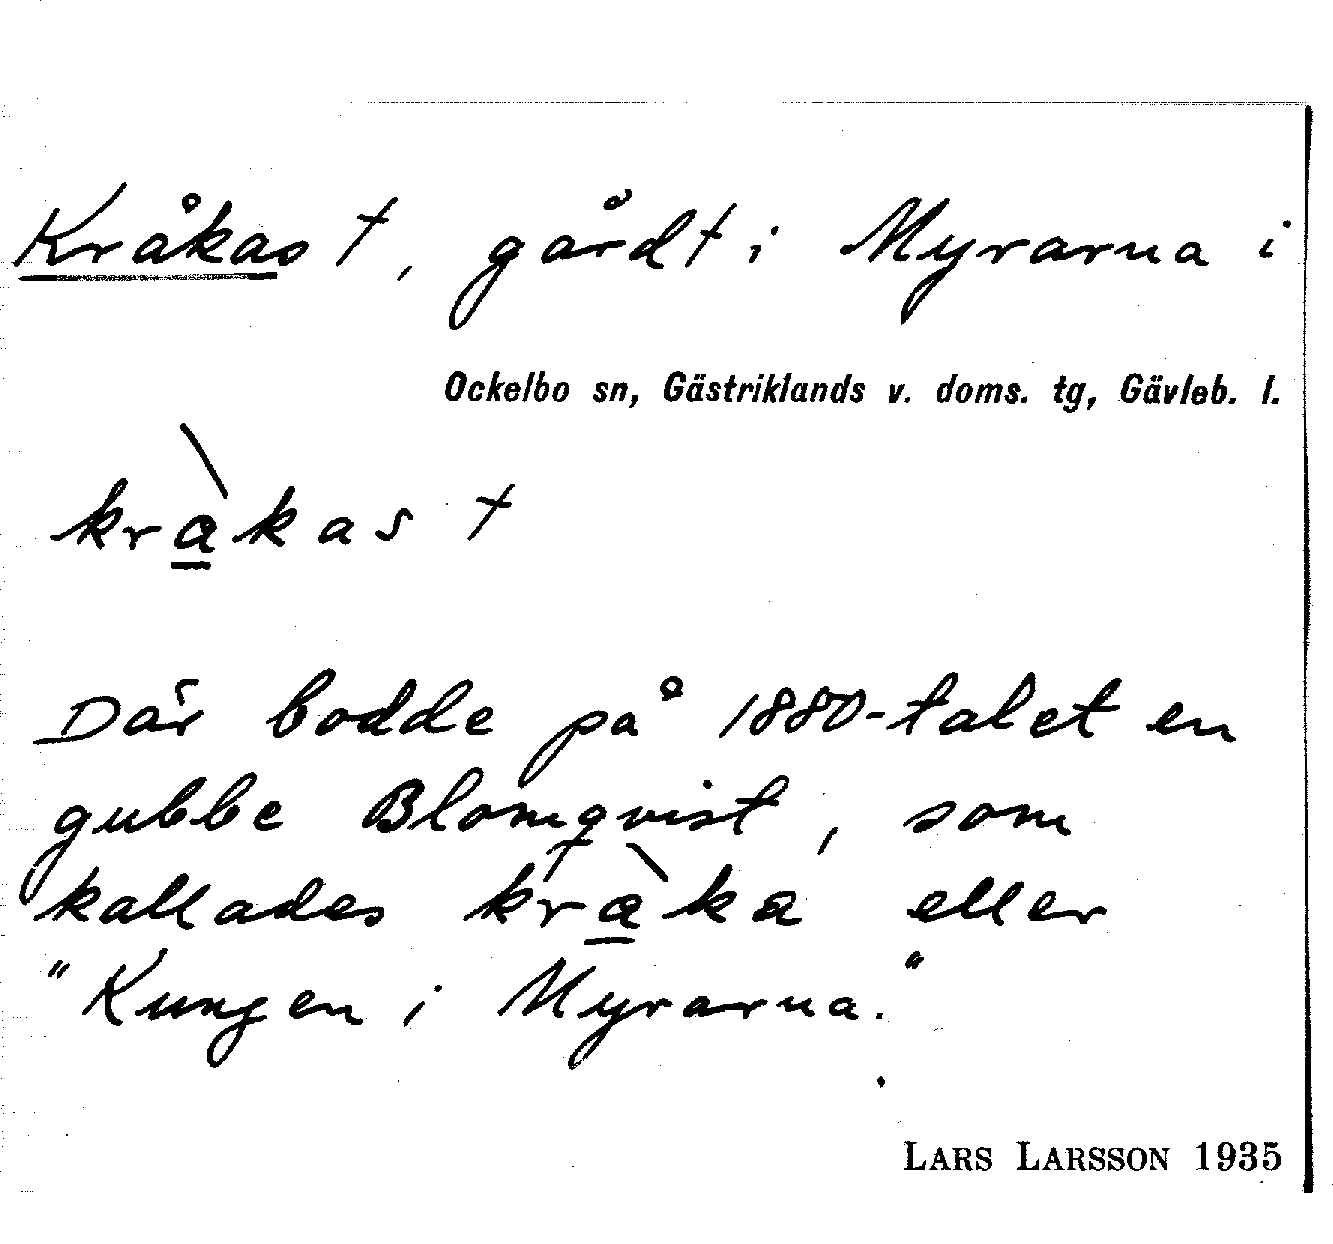 Kråkas †, gård † i Myrarna i
Ockelbo sn, Gästriklands v. doms. tg, Gävleb. l.
krà̲kas †
Där bodde på 1880-talet en
gubbe Blomqvist, som
kallades krà̲ka eller
"Kungen i Myrarna."
LARS LARSSON 1935